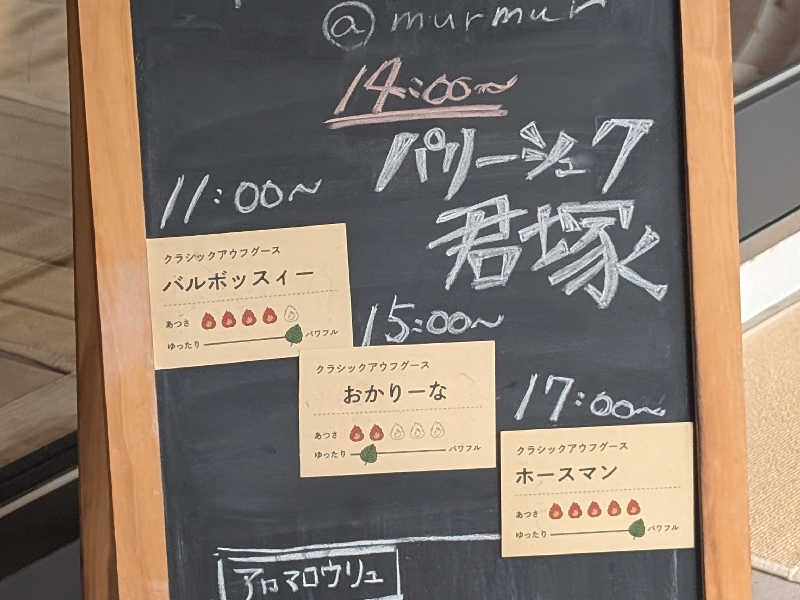 @murmur
14:00〜
パリーシュク
君塚
11:00〜
クラシックアウフグース
バルボッスィー
あつさ
ゆったり パワフル
15:00〜
クラシックアウフグース
おかりーな
あつさ
ゆったり パワフル
17:00〜
クラシックアウフグース
ホースマン
あつさ
ゆったり パワフル
アロマロウリュ